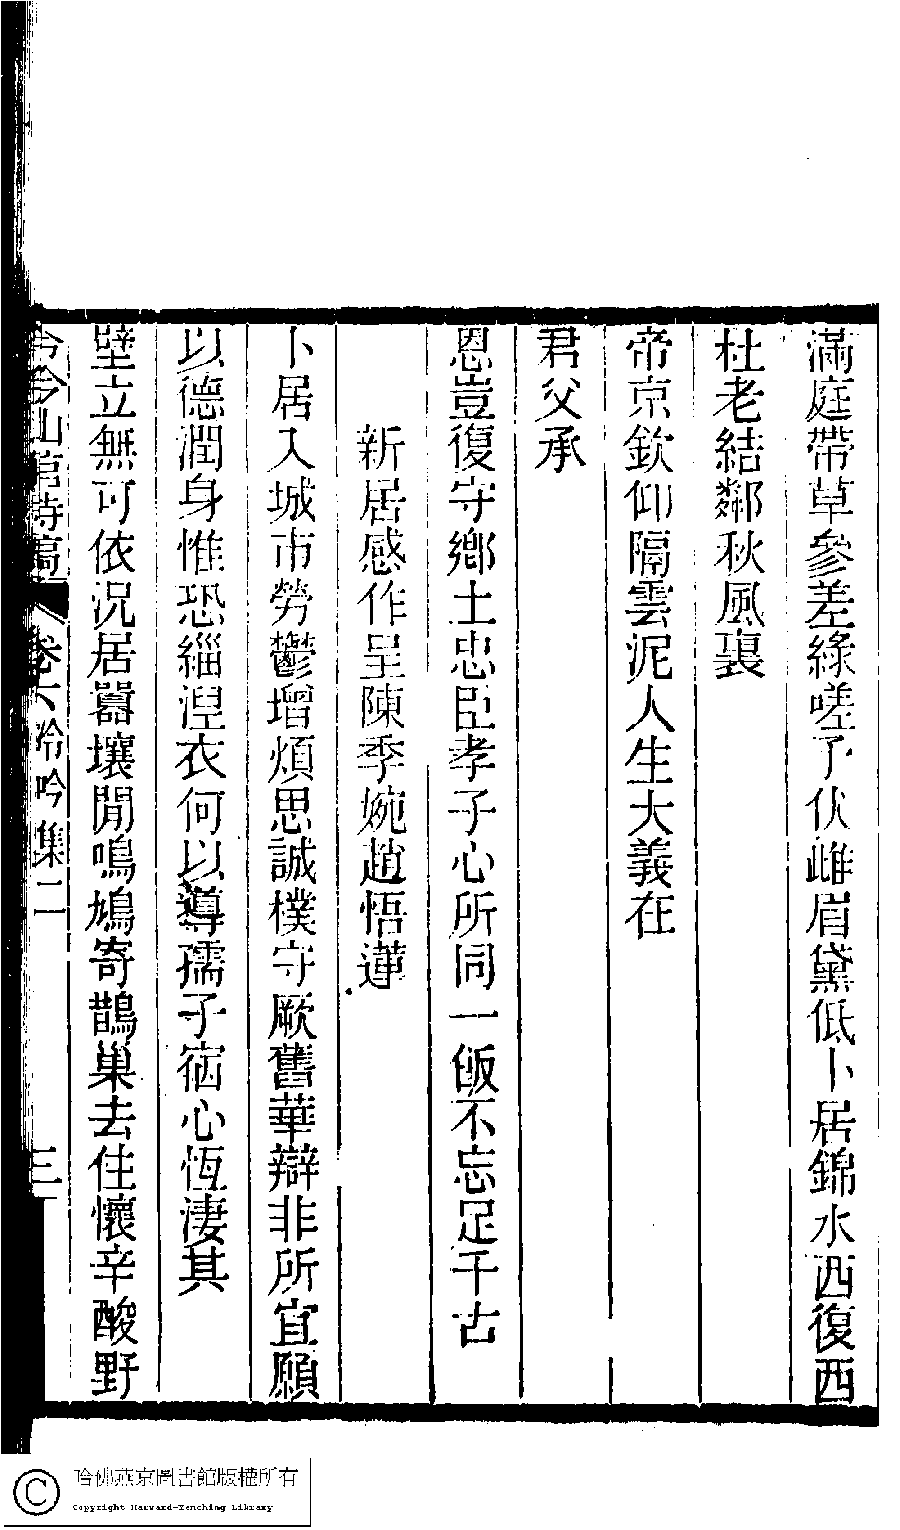 滿庭帶草參差綠嗟予伏雌眉黛低卜居錦水西復西
杜老結鄰秋風裏
帝京欽仰隔雲泥人生大義在
君父承
恩豈復守鄉土忠臣孝子心所同一飯不忘足千古
新居感作呈陳季婉趙悟蓮
卜居入城市勞鬱增煩思誠樸守厥舊華辯非所宜願
以德潤身惟恐緇湼衣何以導孺子宿心恆淒其
壁立無可依況居囂壤閒鳴鳩寄鵲巢去住懷辛酸野
吟今山館詩稿 卷六冷吟集二 三
哈佛燕京圖書館版權所有
Copyright Harvard-Yenching Library